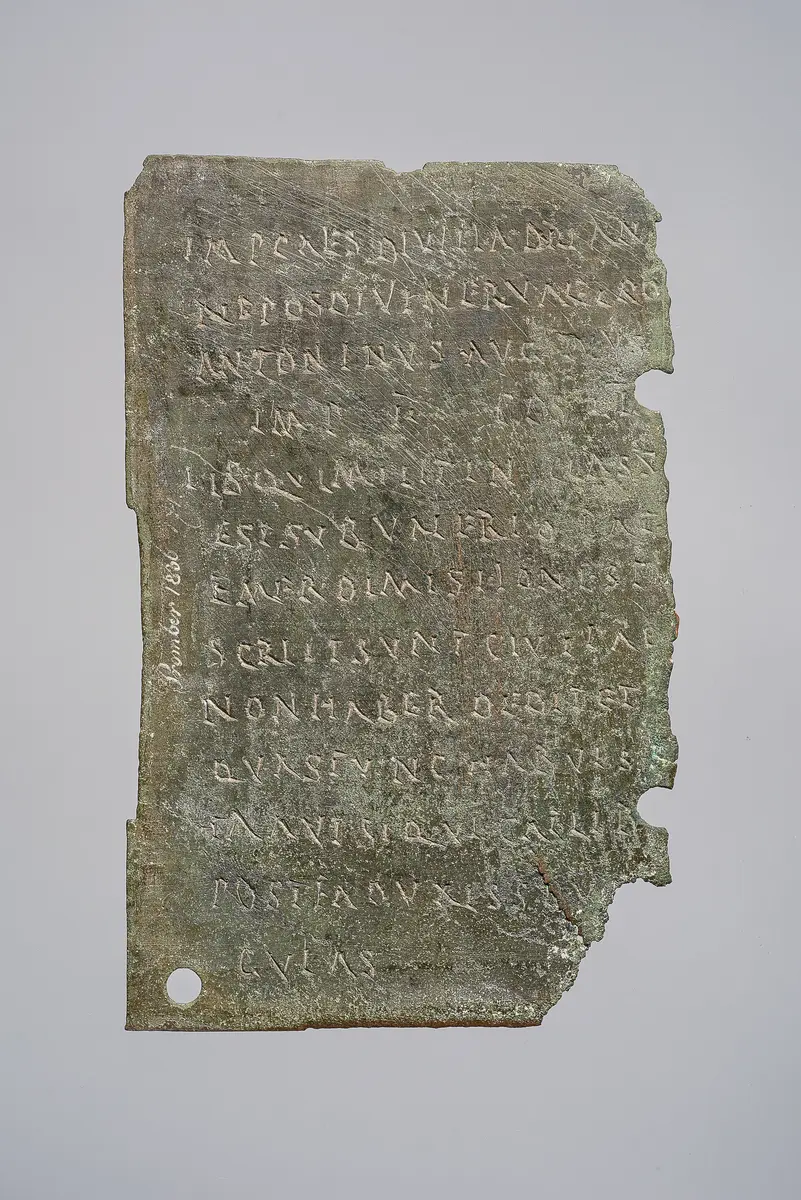 IMP CAES DIVI HADRIAN
NEPOS DIVI NERVAE PRO
ANTONINVS AVG
IMP II COS
LIB QVI MILIT IN CLASS
EST SVB VALERIO
EMER DIMISSIONE
SCRIPT SVNT CIVITAT
NON HABER DEDIT ET
QVAS TVNC HABVIS
TM AVT SI QVI CAELIB
POSTEA DVXISS
GVLAS
1836